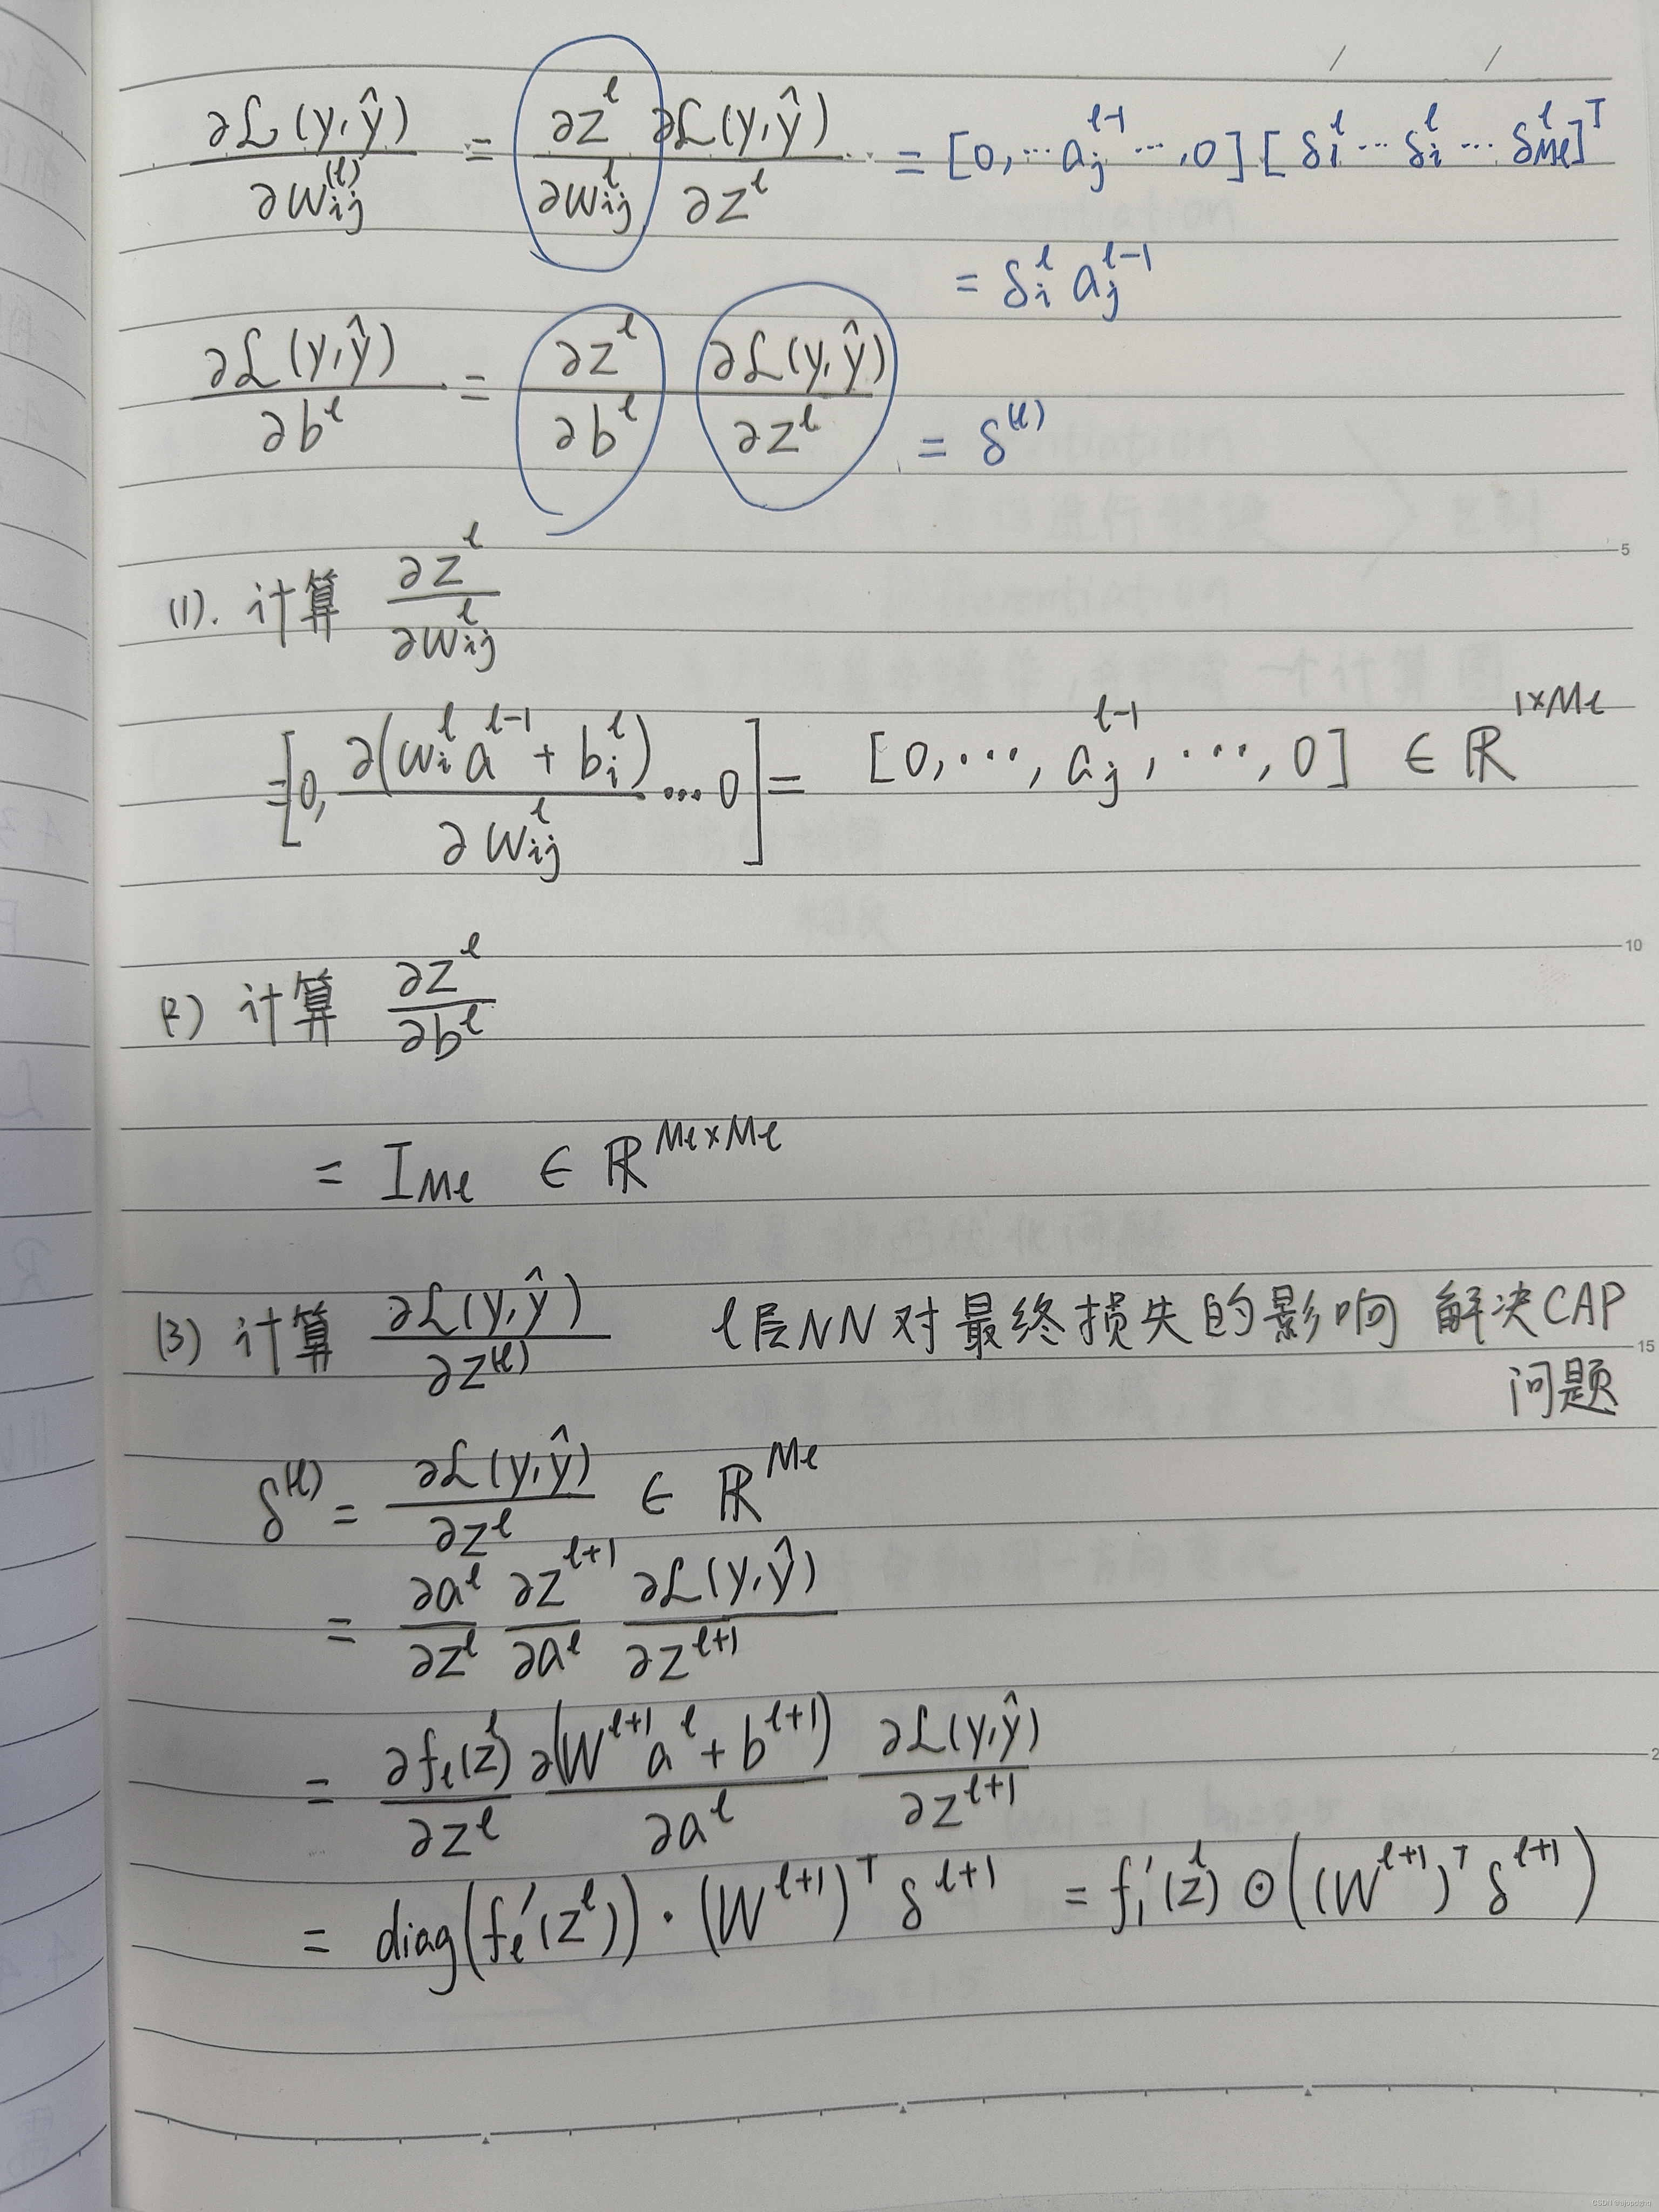 ∂ℒ(y,ŷ)/∂w_ij^(l) = ∂z^l/∂w_ij^l ∂ℒ(y,ŷ)/∂z^l = [0,⋯a_j^{l-1}⋯,0][δ_i^l⋯δ_i^l⋯δ_{Ml}^l]^T
= δ_i^l a_j^{l-1}
∂ℒ(y,ŷ)/∂b^l = ∂z^l/∂b^l ∂ℒ(y,ŷ)/∂z^l = δ^(l)
5
(1). 计算 ∂z^l/∂w_ij^l
=[0, ∂(w_i^l a^{l-1} + b_i^l)/∂w_ij^l ⋯ 0] = [0,⋯, a_j^{l-1}, ⋯, 0] ∈ ℝ^{1×Ml}
10
(2) 计算 ∂z^l/∂b^l
= I_{Ml} ∈ ℝ^{Ml×Ml}
(3) 计算 ∂ℒ(y,ŷ)/∂z^(l) l层NN对最终损失的影响 解决CAP
15
问题
δ^(l) = ∂ℒ(y,ŷ)/∂z^l ∈ ℝ^{Ml}
= ∂a^l/∂z^l ∂z^{l+1}/∂a^l ∂ℒ(y,ŷ)/∂z^{l+1}
= ∂f_l(z^l)/∂z^l ∂(W^{l+1}a^l + b^{l+1})/∂a^l ∂ℒ(y,ŷ)/∂z^{l+1}
= diag(f_l′(z^l))·(W^{l+1})^T δ^{l+1} = f_l′(z^l) ⊙ ((W^{l+1})^T δ^{l+1})